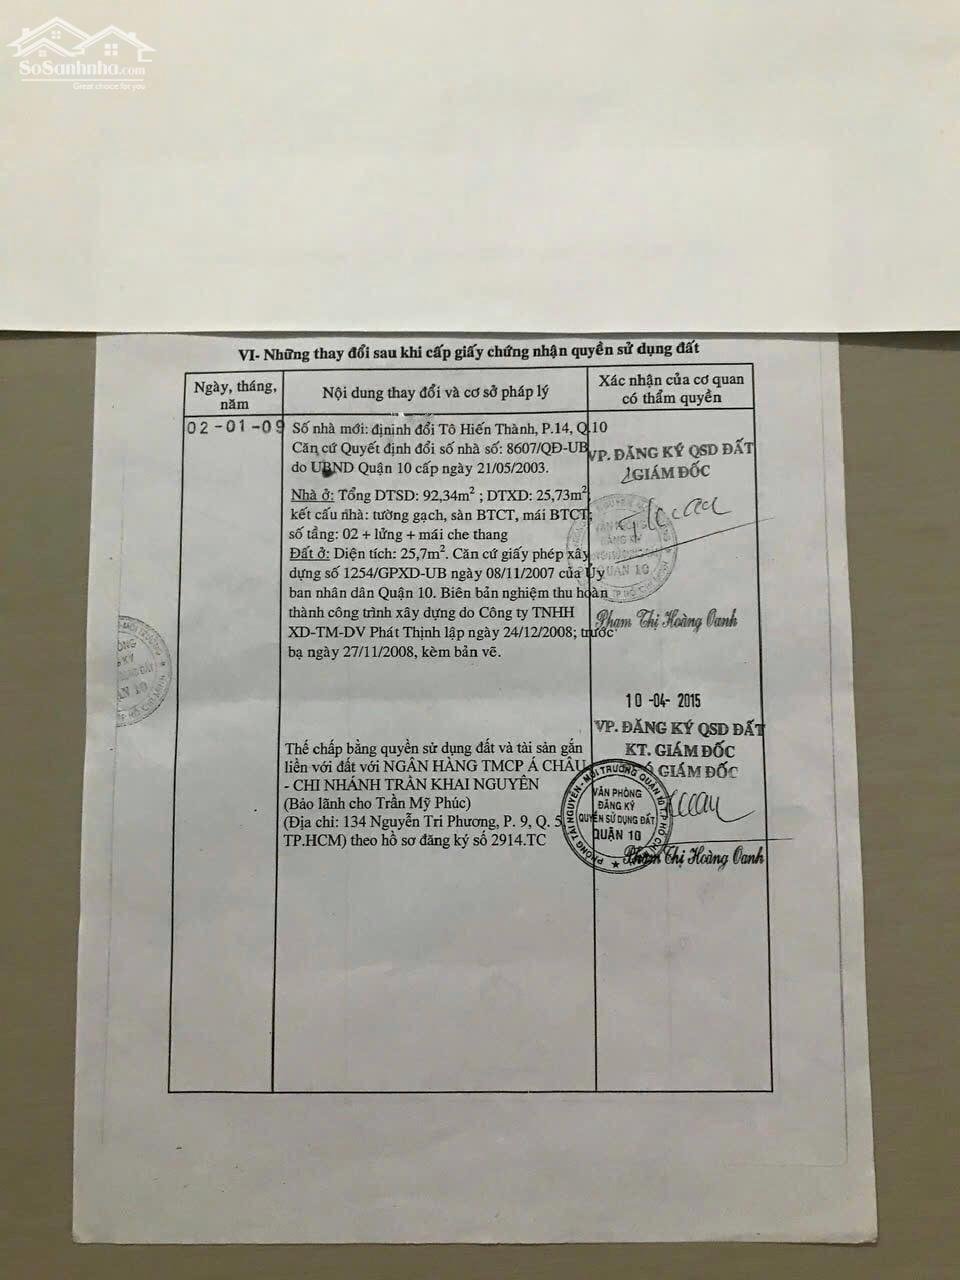 SoSanhnha.com
Great choice for you
VI- Những thay đổi sau khi cấp giấy chứng nhận quyền sử dụng đất
Ngày, tháng, năm
Nội dung thay đổi và cơ sở pháp lý
Xác nhận của cơ quan có thẩm quyền
02-01-09
Số nhà mới: địninh đổi Tô Hiến Thành, P.14, Q.10
Căn cứ Quyết định đổi số nhà số: 8607/QĐ-UB
do UBND Quận 10 cấp ngày 21/05/2003.
Nhà ở: Tổng DTSD: 92,34m²; DTXD: 25,73m²;
kết cấu nhà: tường gạch, sàn BTCT, mái BTCT;
số tầng: 02 + lửng + mái che thang
Đất ở: Diện tích: 25,7m². Căn cứ giấy phép xây
dựng số 1254/GPXD-UB ngày 08/11/2007 của Ủy
ban nhân dân Quận 10. Biên bản nghiệm thu hoàn
thành công trình xây dựng do Công ty TNHH
XD-TM-DV Phát Thịnh lập ngày 24/12/2008; trước
bạ ngày 27/11/2008, kèm bản vẽ.
VP. ĐĂNG KÝ QSD ĐẤT
GIÁM ĐỐC
VĂN PHÒNG
ĐĂNG KÝ
QUẬN 10
Phạm Thị Hoàng Oanh
Thế chấp bằng quyền sử dụng đất và tài sản gắn
liền với đất với NGÂN HÀNG TMCP Á CHÂU
- CHI NHÁNH TRẦN KHAI NGUYÊN
(Bảo lãnh cho Trần Mỹ Phúc)
(Địa chỉ: 134 Nguyễn Tri Phương, P. 9, Q. 5
TP.HCM) theo hồ sơ đăng ký số 2914.TC
10 -04- 2015
VP. ĐĂNG KÝ QSD ĐẤT
KT. GIÁM ĐỐC
GIÁM ĐỐC
PHÒNG TÀI NGUYÊN - MÔI TRƯỜNG QUẬN 10 TP HỒ CHÍ MINH
VĂN PHÒNG
ĐĂNG KÝ
QUYỀN SỬ DỤNG ĐẤT
QUẬN 10
Phạm Thị Hoàng Oanh